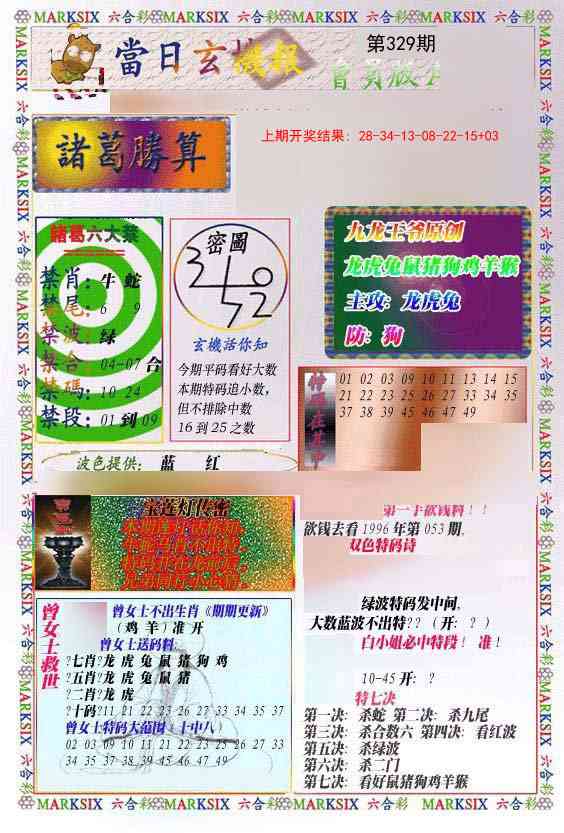 MARKSIX 六合彩 MARKSIX 六合彩 MARKSIX 六合彩 MARKSIX 六合彩
當日玄機報
第329期
上期开奖结果：28-34-13-08-22-15+03
諸葛勝算
諸葛六大禁
禁肖：牛 蛇
禁尾：6 9
禁波：绿
禁合：04-07合
禁碼：10 24
禁段：01到09
密圖
玄機活你知
今期平码看好大数
本期特码追小数，
但不排除中数
16到25之数
九龙王爷原创
龙虎兔鼠猪狗鸡羊猴
主攻：龙虎兔
防：狗
特码在其中
01 02 03 09 10 11 13 14 15
21 22 23 25 26 27 33 34 35
37 38 39 45 46 47 49
波色提供： 蓝 红
宝莲灯传密
曾女士救世
曾女士不出生肖《期期更新》
（鸡 羊）准 开
曾女士送码料
?七肖?龙 虎 兔 鼠 猪 狗 鸡
?五肖?龙 虎 兔 鼠 猪
?二肖?龙 虎
?十码?11 21 22 23 26 27 33 34 35 37
曾女士特码大范围（十中八）
02 03 09 10 11 21 22 23 25 26 27 33
34 35 37 38 39 45 46 47 49
第一手欲钱料！！
欲钱去看1996年第053期，
双色特码诗
绿波特码发中间，
大数蓝波不出特??（开：？）
白小姐必中特段！ 准！
10-45 开：？
特七决
第一决：杀蛇 第二决：杀九尾
第三决：杀合数六 第四决：看红波
第五决：杀绿波
第六决：杀二门
第七决：看好鼠猪狗鸡羊猴
MARKSIX 六合彩 MARKSIX 六合彩 MARKSIX 六合彩 MARKSIX 六合彩